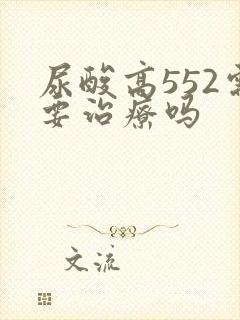 尿酸高552需
要治疗吗
文流